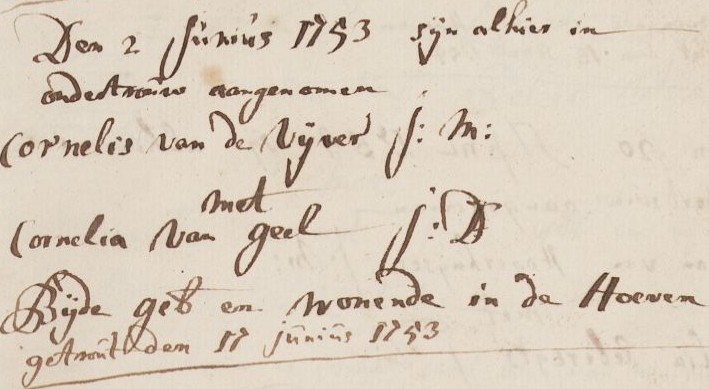 Den 2 Junius 1753 syn alhier in
ondertrouw aangenomen
Cornelis van de Vyver J: M:
met
Cornelia van geel J: D
Byde geb en wonende in de Hoeven
getrout den 17 junius 1753